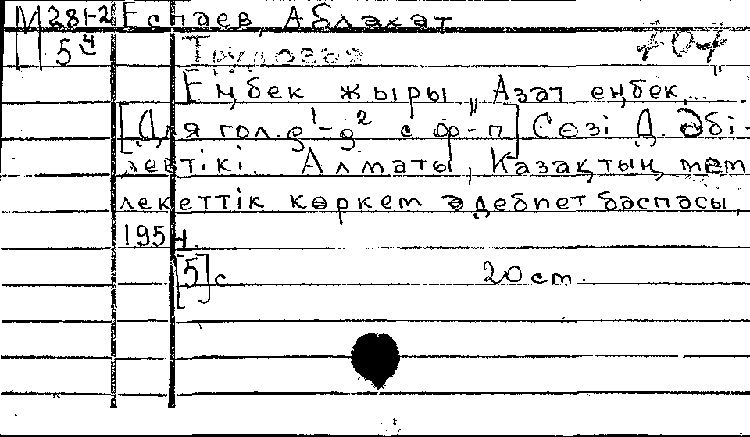 М 281-2 Еспаев, Аблахат
5ч Трудовая 704
Еңбек жыры „Азат еңбек..."
[Для гол. g¹-g² с ф-п] Сөзі Д. Әбі-
левтікі. Алматы, Қазақтың мем
лекеттік көркем әдебиет баспасы,
1954.
[5] с 20 cm.